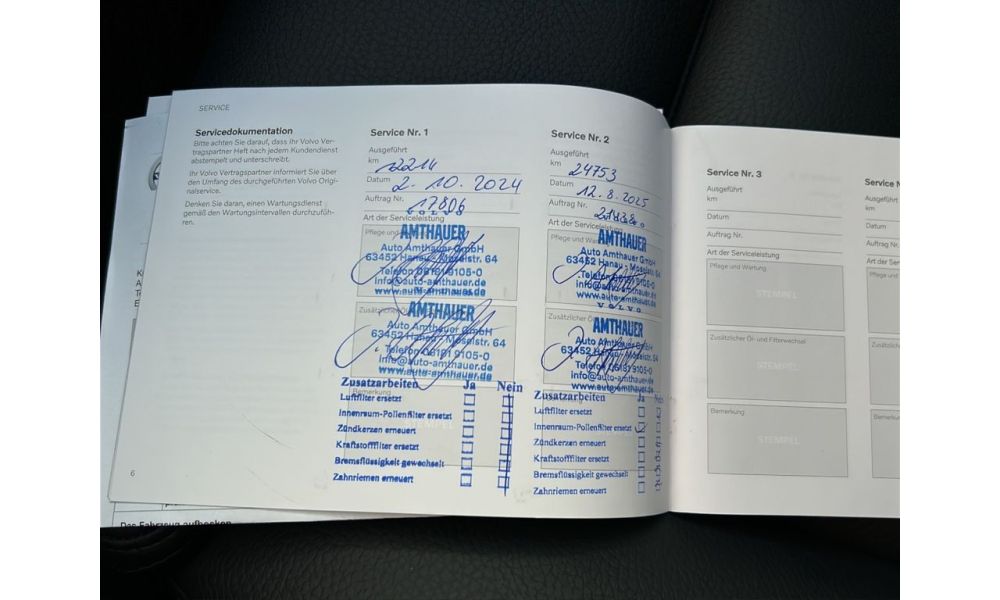 SERVICE
Servicedokumentation
Bitte achten Sie darauf, dass Ihr Volvo Ver-
tragspartner Heft nach jedem Kundendienst
abstempelt und unterschreibt.
Ihr Volvo Vertragspartner informiert Sie über
den Umfang des durchgeführten Volvo Origi-
nalservice.
Denken Sie daran, einen Wartungsdienst
gemäß den Wartungsintervallen durchzufüh-
ren.
6
Service Nr. 1
Ausgeführt
km 12214
Datum 2. 10. 2024
Auftrag Nr. 17806
VOLVO
Art der Serviceleistung
Pflege und
AMTHAUER
Auto Amthauer GmbH
63452 Hanau - Moselstr. 64
Telefon 06181 9105-0
info@auto-amthauer.de
www.auto-amthauer.de
Zusätzlicher
AMTHAUER
Auto Amthauer GmbH
63452 Hanau - Moselstr. 64
Telefon 06181 9105-0
info@auto-amthauer.de
www.auto-amthauer.de
Zusatzarbeiten Ja Nein
Bemerkung
Luftfilter ersetzt
Innenraum-Pollenfilter ersetzt
STEMPEL
Zündkerzen erneuert
Kraftstofffilter ersetzt
Bremsflüssigkeit gewechselt
Zahnriemen erneuert
Service Nr. 2
Ausgeführt
km 24753
Datum 12. 8. 2025
Auftrag Nr. 21838
Art der Serviceleistung
Pflege und
AMTHAUER
Auto Amthauer GmbH
63452 Hanau - Moselstr. 64
Telefon 06181 9105-0
info@auto-amthauer.de
www.auto-amthauer.de
VOLVO
Zusätzlicher
AMTHAUER
Auto Amthauer GmbH
63452 Hanau - Moselstr. 64
Telefon 06181 9105-0
info@auto-amthauer.de
www.auto-amthauer.de
Zusatzarbeiten Ja Nein
Luftfilter ersetzt
Innenraum-Pollenfilter ersetzt
Zündkerzen erneuert
Kraftstofffilter ersetzt
Bremsflüssigkeit gewechselt
Zahnriemen erneuert
Service Nr. 3
Ausgeführt
km
Datum
Auftrag Nr.
Art der Serviceleistung
Pflege und Wartung
STEMPEL
Zusätzlicher Öl- und Filterwechsel
STEMPEL
Bemerkung
STEMPEL
Service N
Ausgeführt
km
Datum
Auftrag Nr.
Art der Ser
Pflege und
Zusätzlich
Bemerkun
Das Fahrzeug aufbocken